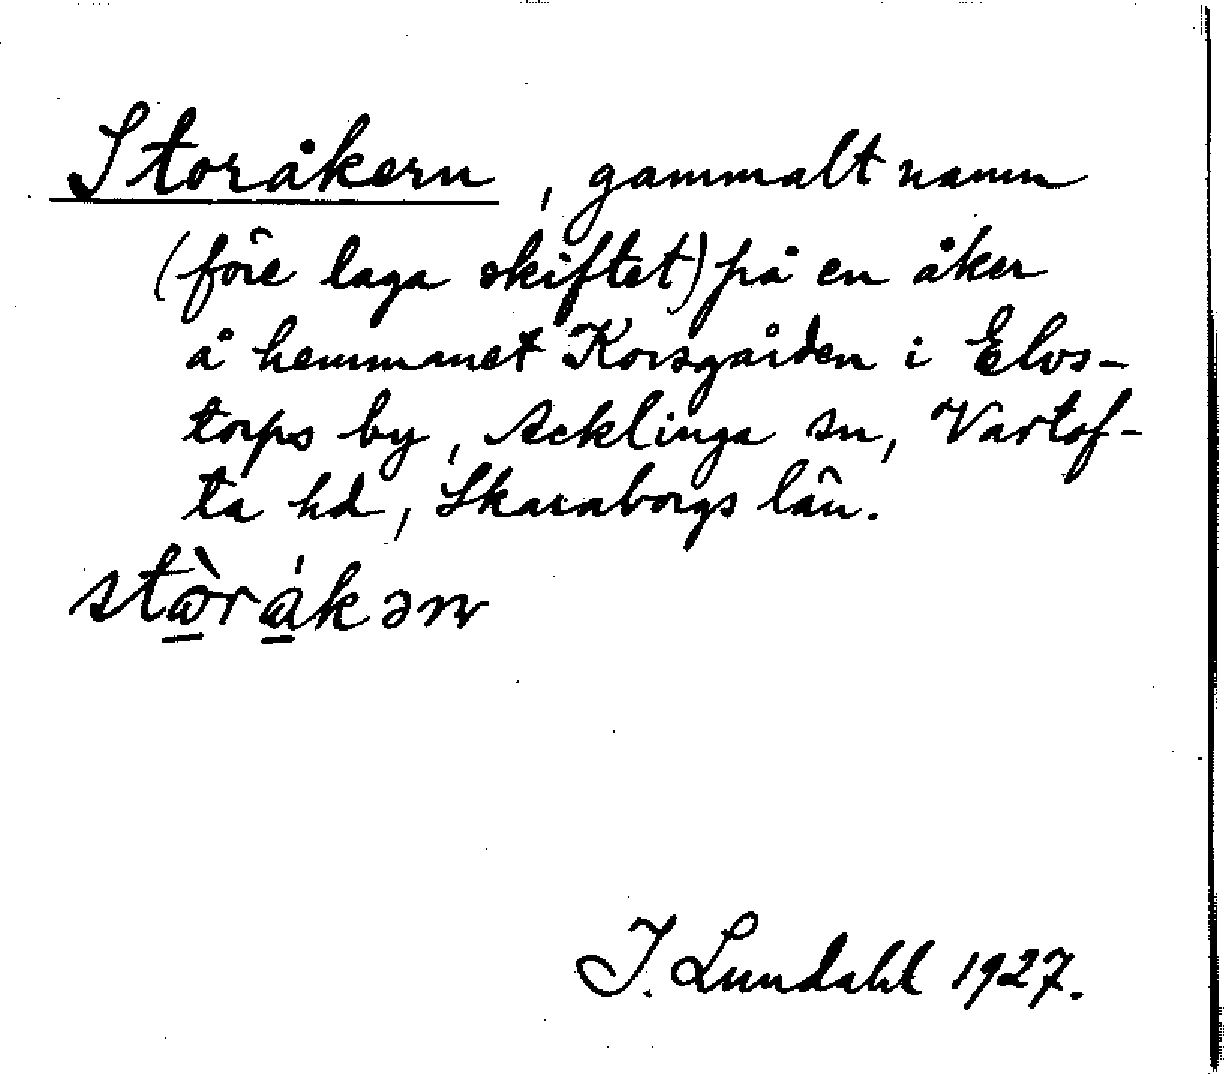 Storåkern, gammalt namn
(före laga skiftet) på en åker
å hemmanet Korsgården i Elvs-
torps by, Acklinga sn, Vartof-
ta hd, Skaraborgs län.
I. Lundahl 1927.